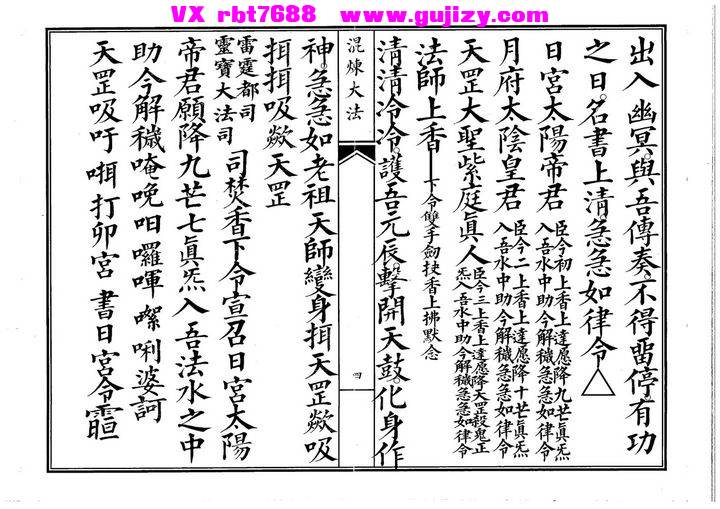 VX rbt7688 www.gujizy.com
出入幽冥與吾傳奏不得畱停有功
之日名書上清急急如律令△
日宮太陽帝君 臣今初上香上達愿降九芒真炁
入吾水中助今解穢急急如律令
月府太陰皇君 臣今二上香上達愿降十芒真炁
入吾水中助今解穢急急如律令
天罡大聖紫庭真人 臣今三上香上達愿降天罡殺鬼正
炁入吾水中助今解穢急急如律令
法師上香 下令雙手劍抆香上拂默念
清清冷冷護吾元辰擊開天鼓化身作
混煉大法
四
神急急如老祖天師變身挕天罡歘吸
挕挕吸歘天罡
雷霆都司
靈寶大法司 司焚香下令宣召日宮太陽
帝君願降九芒七真炁入吾法水之中
助今解穢唵㘕囉㗲嚓唎婆訶
天罡吸吁㖇打卯宮 書日宮令